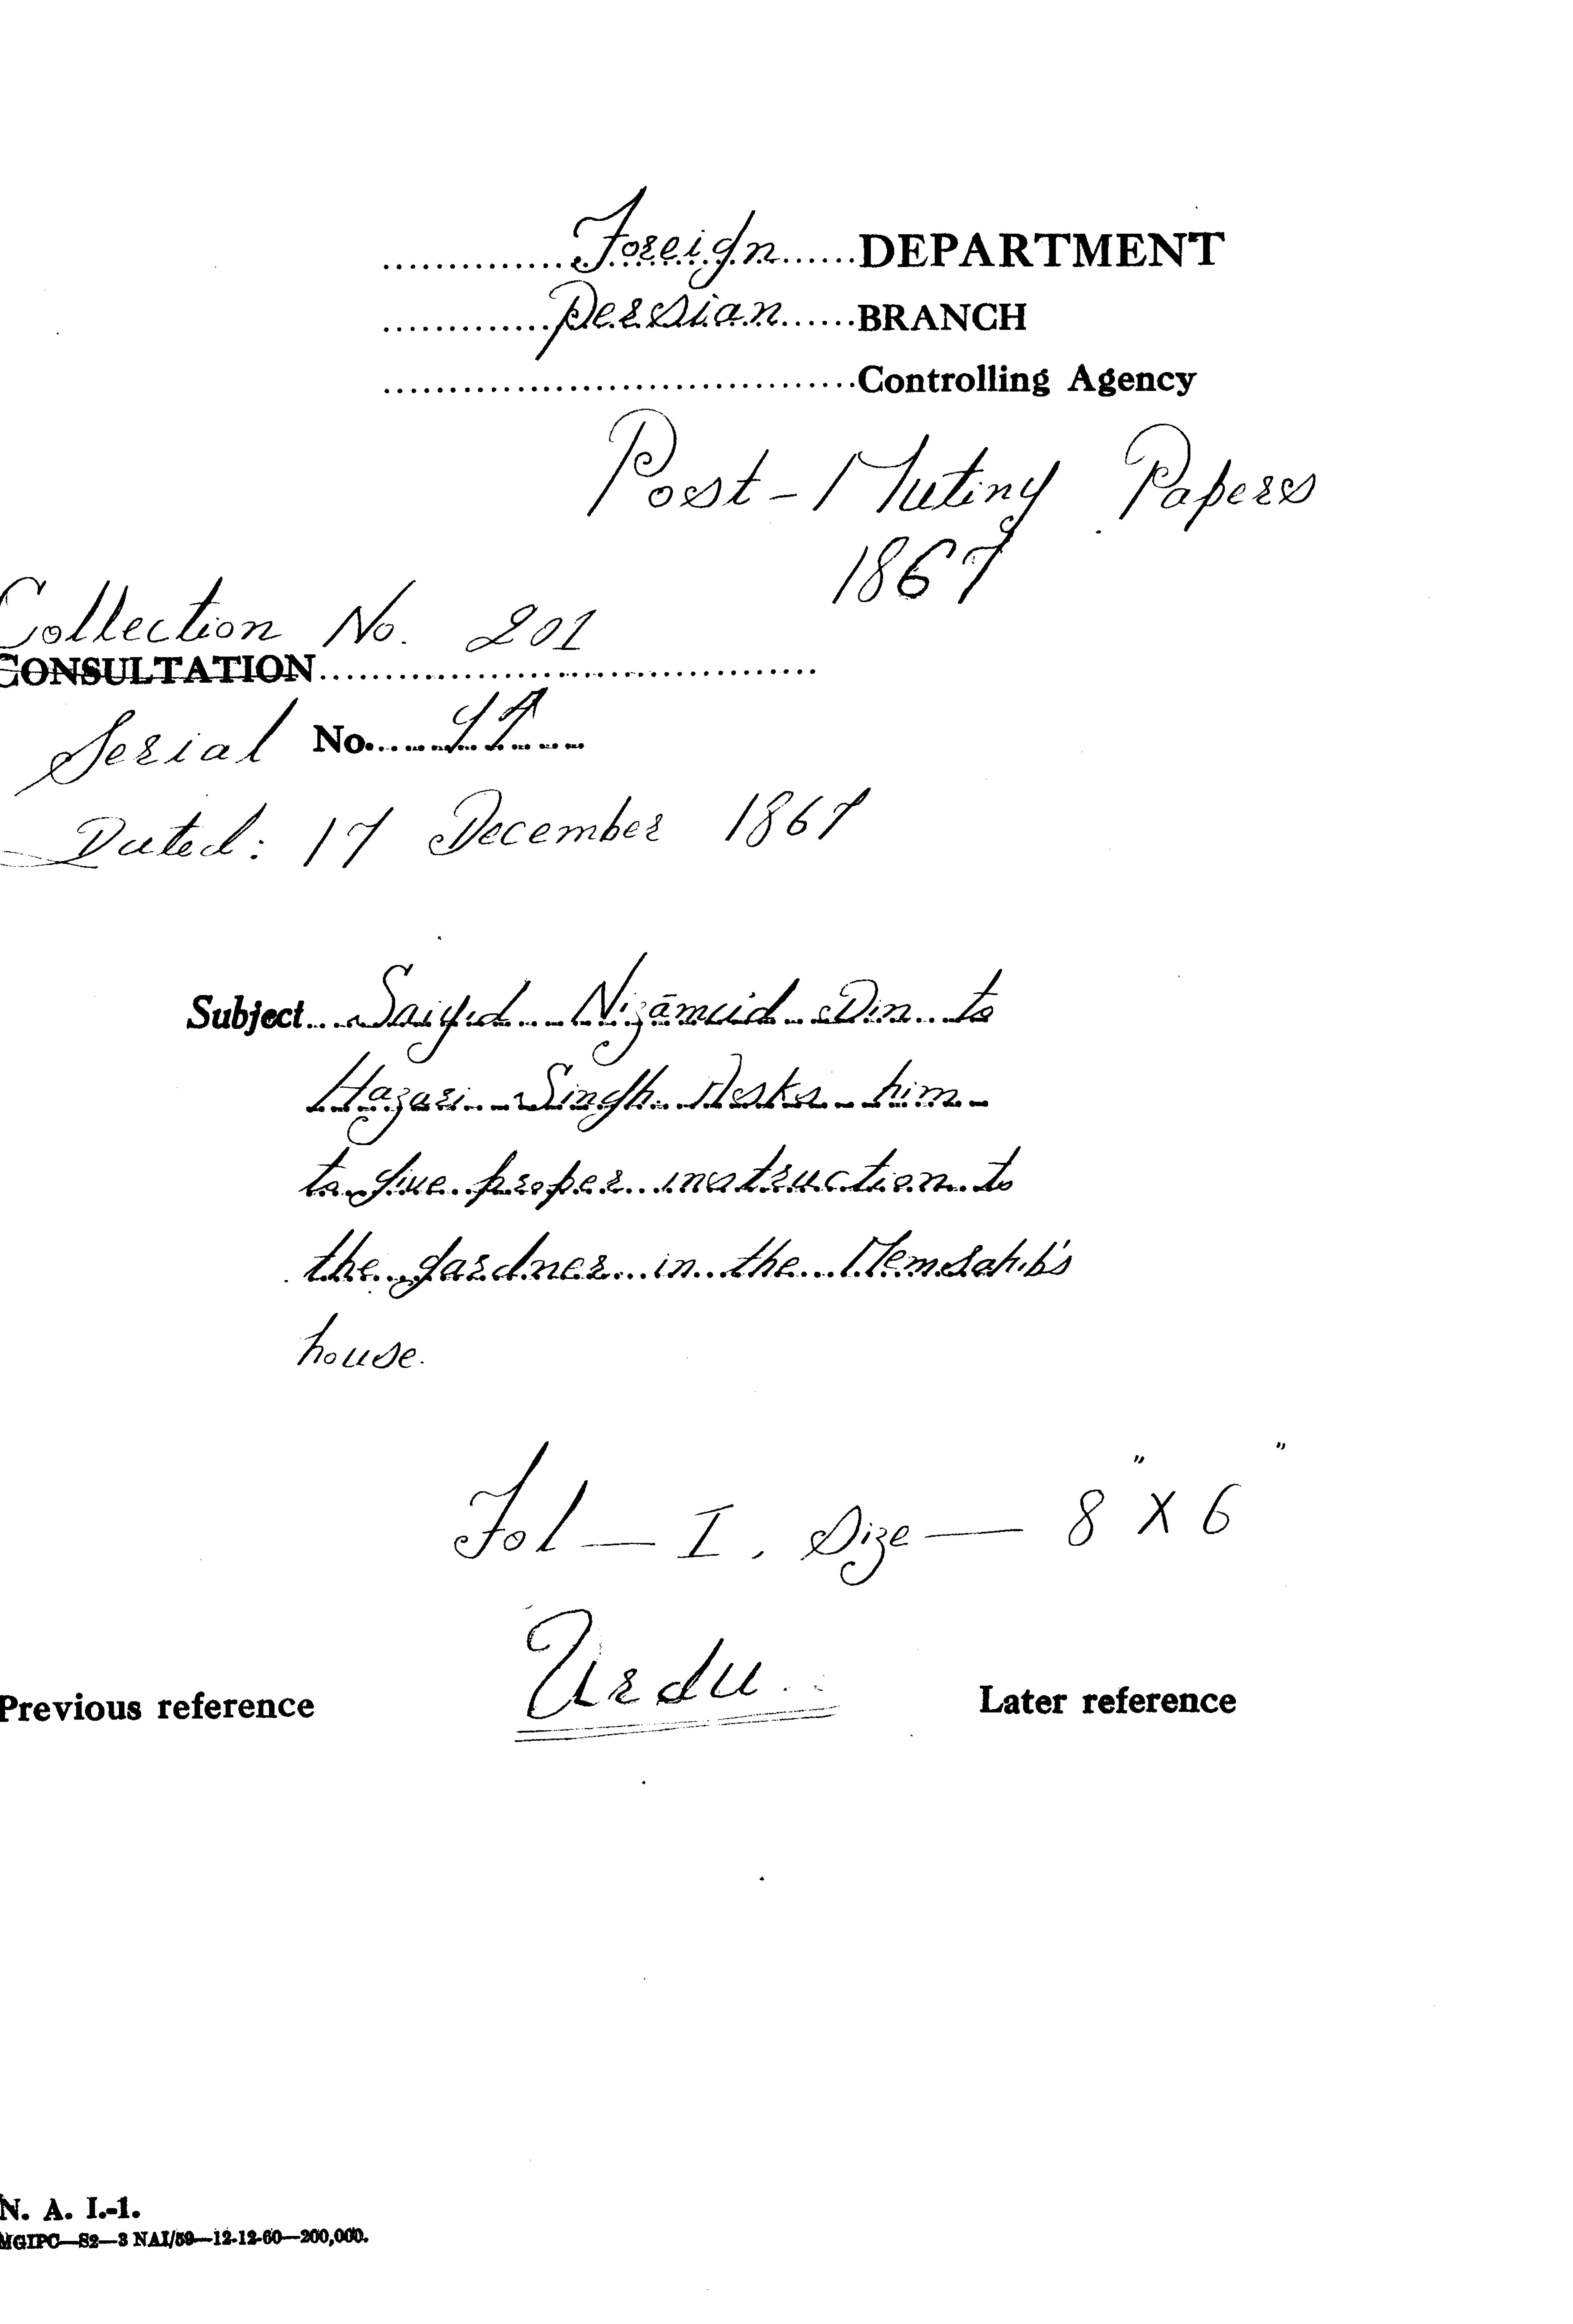 Foreign DEPARTMENT
Persian BRANCH
Controlling Agency
Post-Mutiny Papers
1867
Collection No. 201
CONSULTATION
Serial No.
Dated: 17 December 1867
Subject Saiyid Nizāmud Din to
Hazari Singh Asks him
to give proper instruction to
the gardner in the MemSahib's
house.
Fol — I, Size — 8" X 6"
Urdu
Previous reference Later reference
N. A. I.-1.
MGIPC—S2—3 NAI/59—12-12-60—200,000.